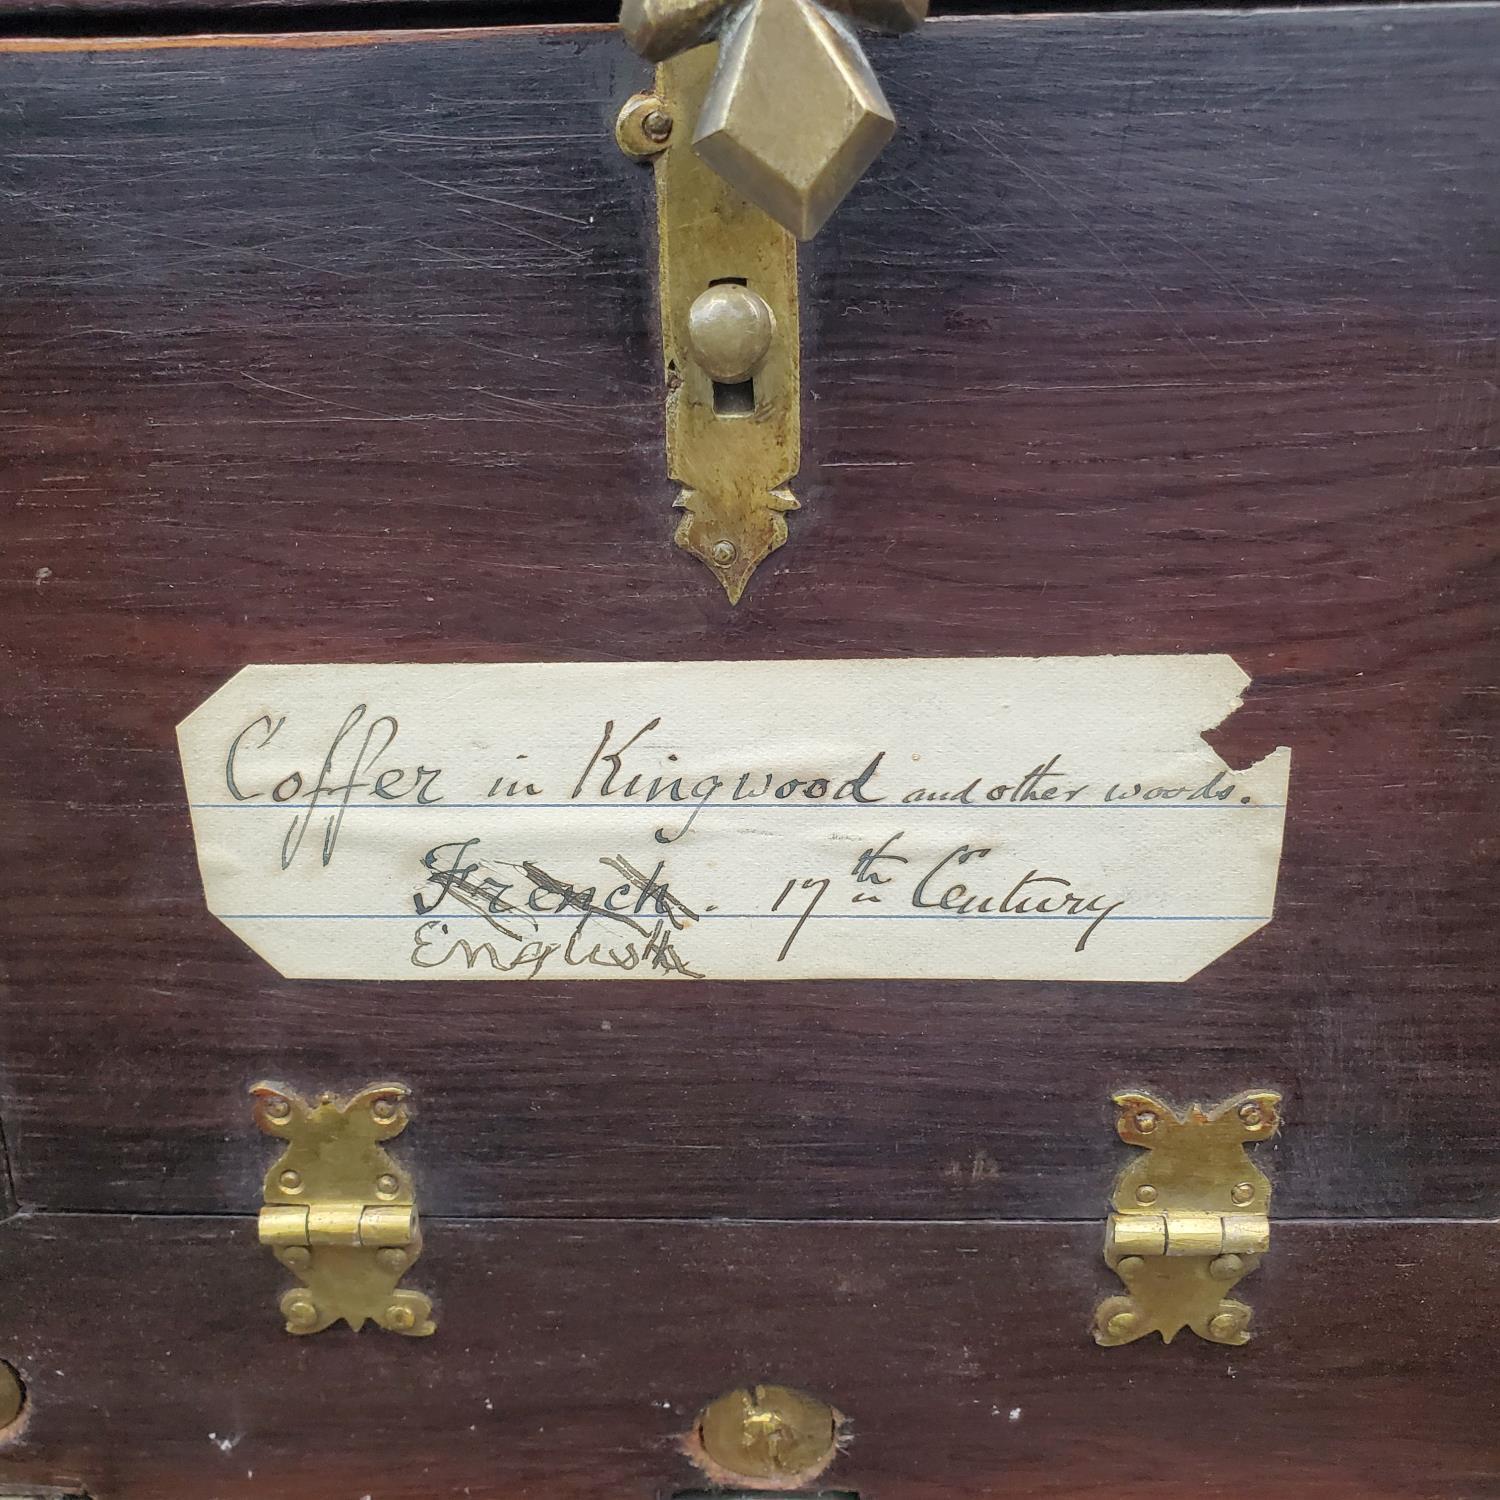 Coffer in Kingwood and other woods.
French. 17th Century
English